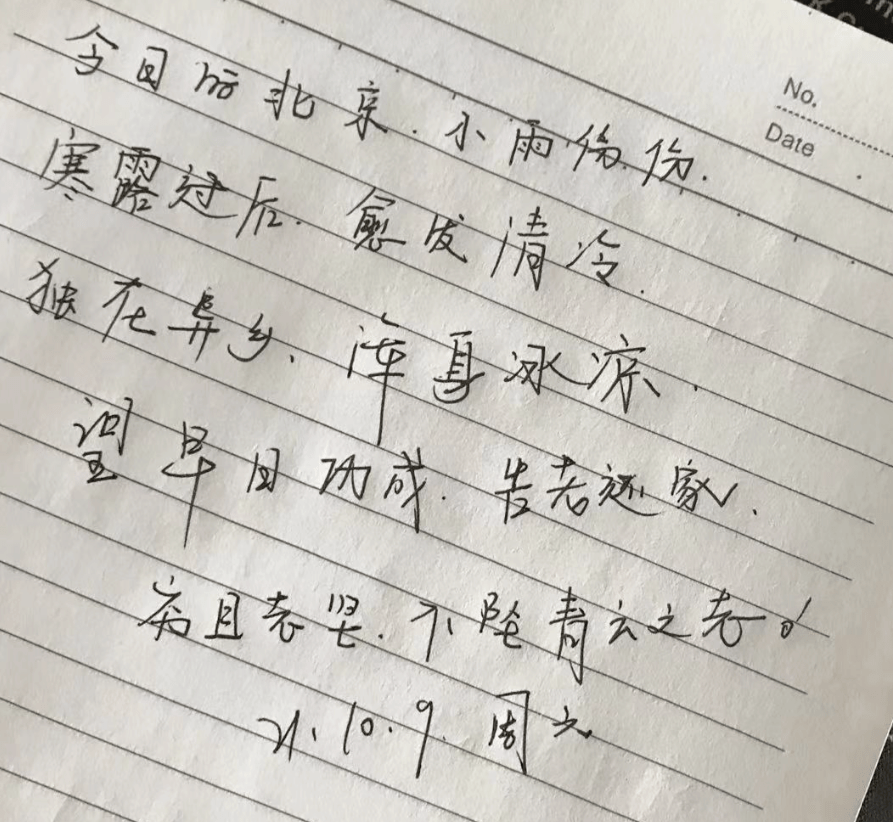 No.
Date
今日的北京.小雨纷纷.
寒露过后.愈发清冷.
独在异乡、浑身冰凉.
望早日功成.告老还家.
穷且志坚.不坠青云之志。
21.10.9.周六